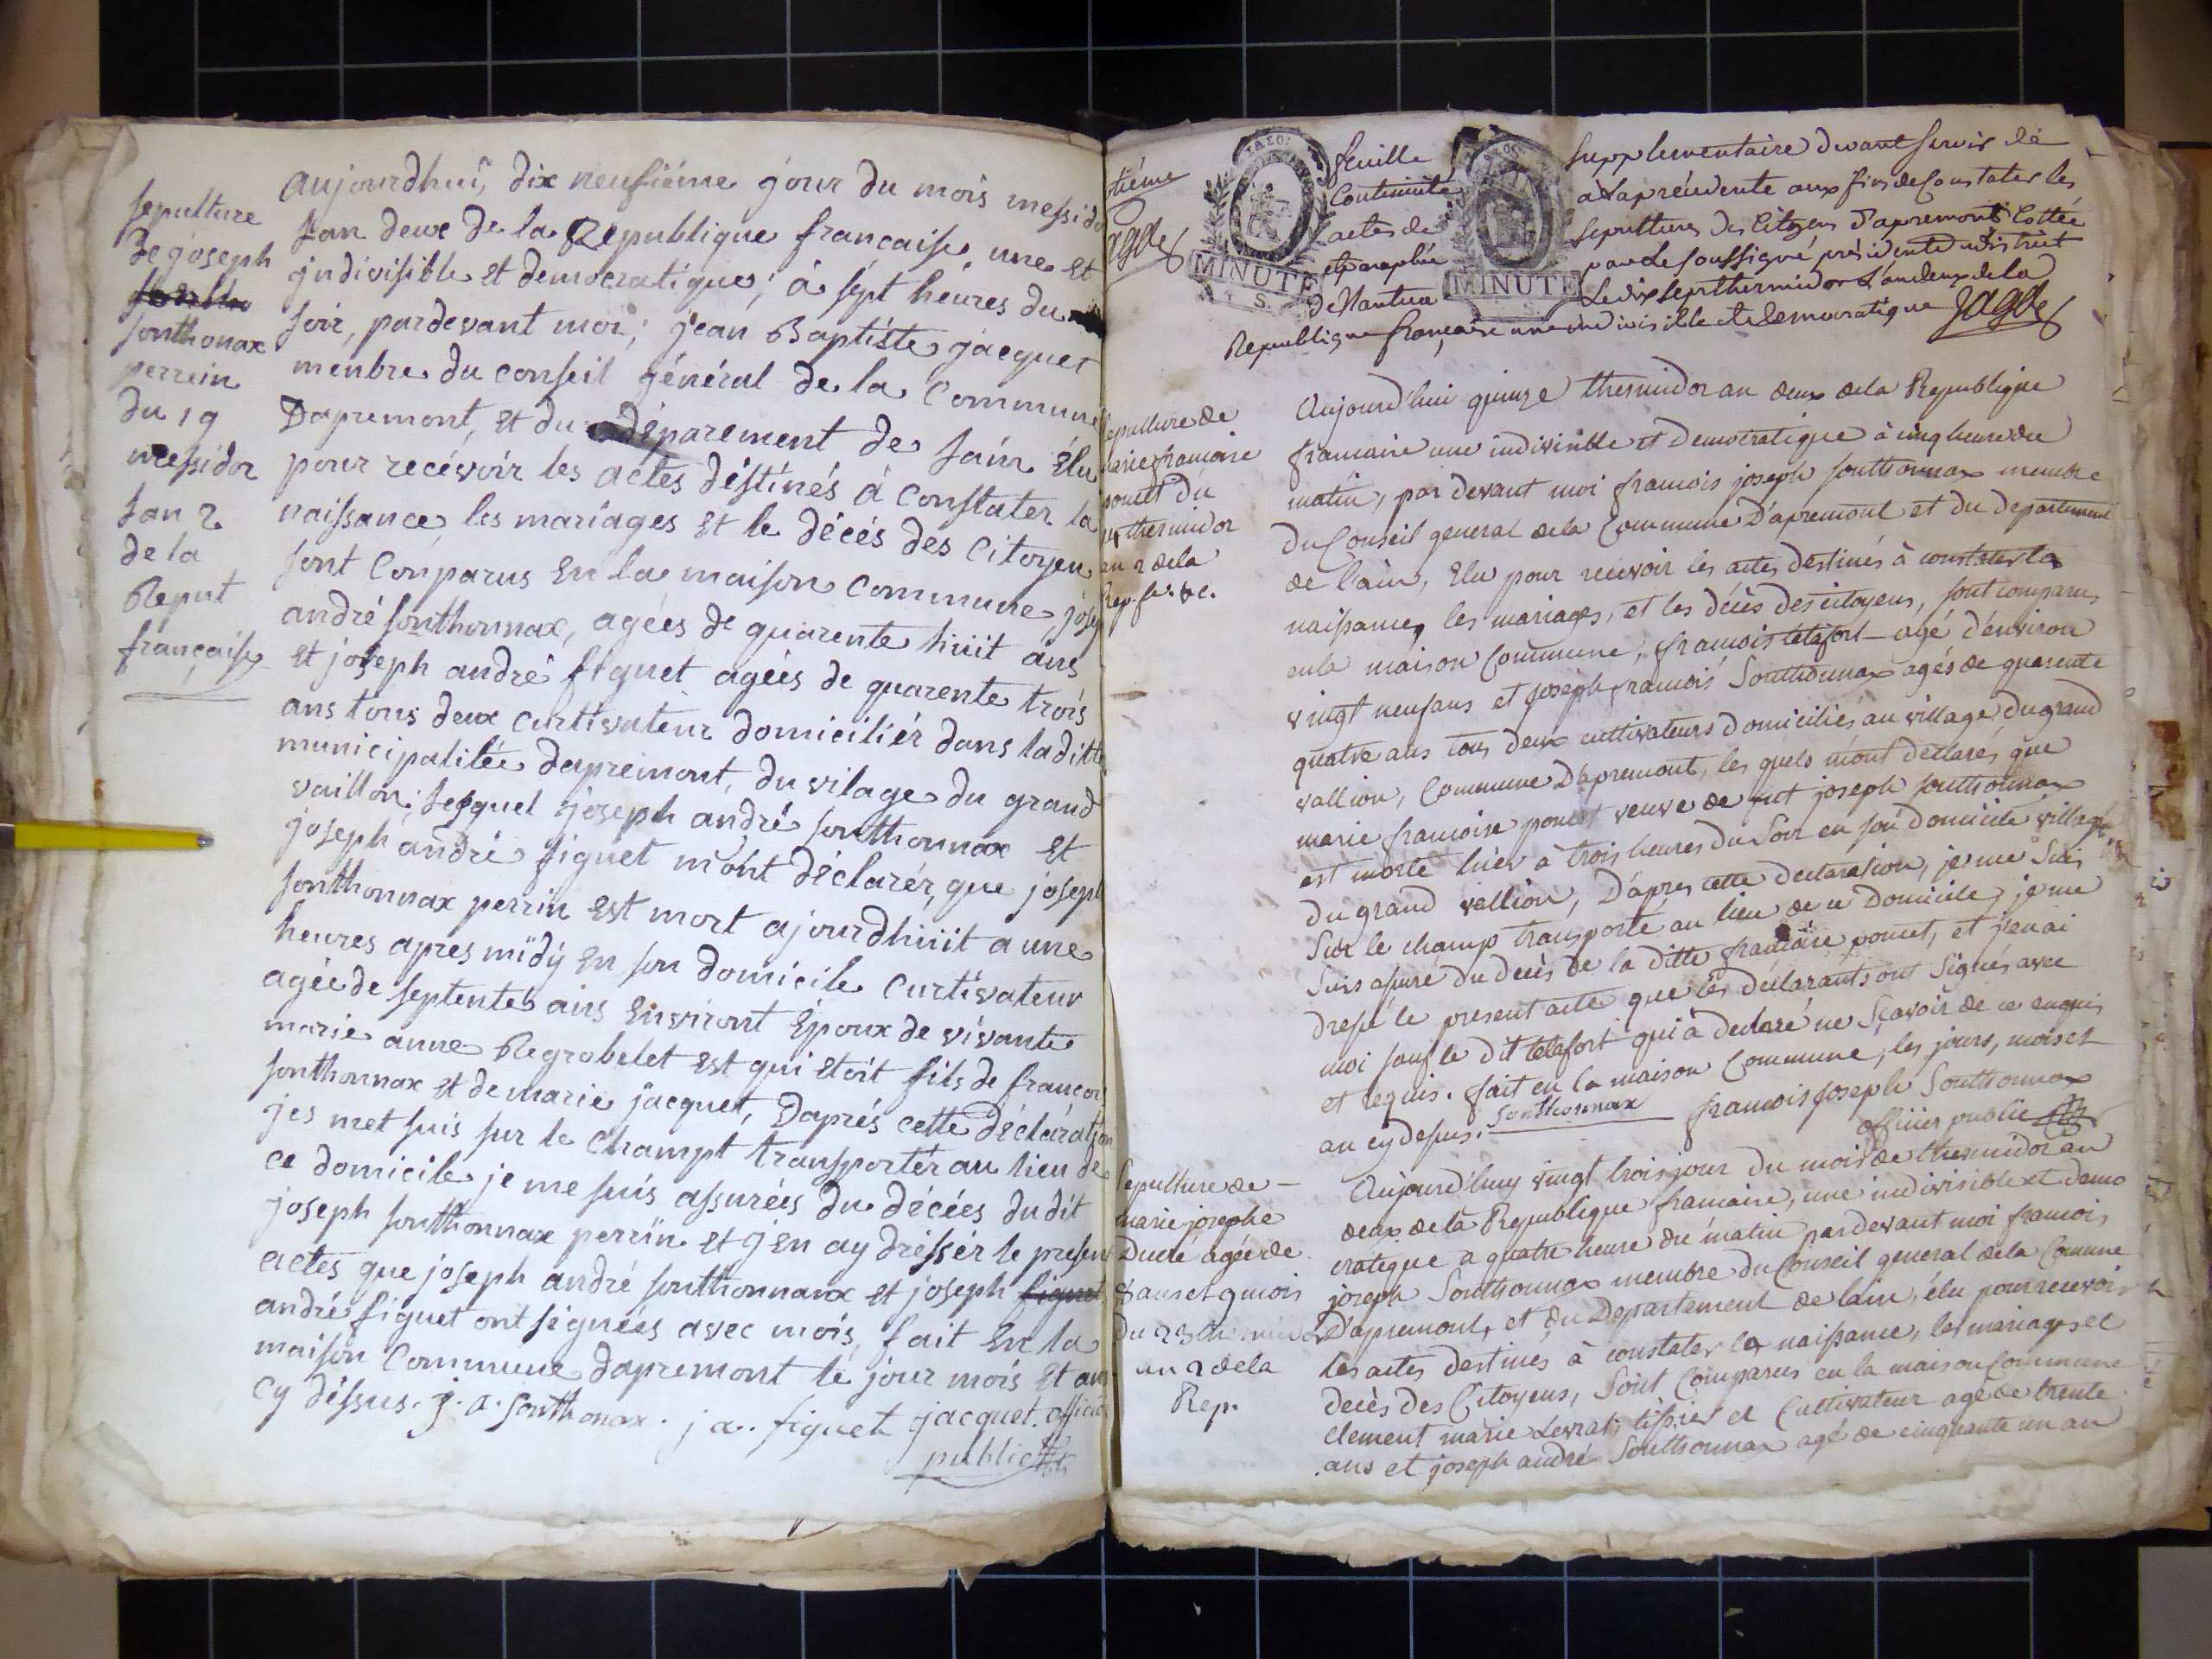 sepulture
de joseph
sonthonax
perrein
du 19
messidor
lan 2
de la
Reput
française
aujourdhui, dix neufiéme jour du mois messido
lan deux de la République française, une et
jndivisible et democratique; à sépt héures du
soir, pardevant moi; jean Baptiste jacquet
menbre du conseil général de la Commune
Dapremont, et du déparement de lain Élu
pour recévoir les actes déstinés à constater la
naissance, les mariages et le décés des Citoyen
sont Conparus En la maison Commune, josep
andré sonthonnax, agées de quarente huit ans
et joseph andré figuet agées de quarente trois
ans tous deux curtivateur domiciliér dans laditte
municipalitée dapremont, du vilage du grand
vaillon; lesquel joseph andré sonthonnax et
joseph andré figuet m'ont déclarér, que joseph
sonthonnax perrin est mort ajourdhuit a une
heures apres midÿ En son domicile curtivateur
agée de septente ans Environt Époux de vivante
marie anne Regrobelet est qui etoit fils de francois
sonthonnax et de marie jacquet, Daprés cette déclaration
jes met suis sur le champt transportér au lieu de
ce domicile je me suis assurées du décées dudit
joseph sonthonnax perrin et j'en ay dréssér le present
actes que joseph andré sonthonnanx et joseph figuet
andré figuet ont signées avec mois, fait En la
maison Commune dapremont lé jour mois et an
cy déssus. j. a. sonthonax. j a. figuet jacquet. officier
public
tiéme
Jagde
MINUTE
S.
MINUTE
feuille supplementaire devant servir de
Continuité à la précédente aux fins de Constater les
actes de sepultures des Citoyens d'apremont Cottée
et paraphée par le soussigné président du district
de Nantua Le dix sept thermidor L'an deux de la
Republique française une indivisible et democratique Jagde
sepulture de
marie francoise
poncet du
thermidor
an 2 de la
Rep. fr. &c.
Aujourd'hui quinze thermidor an deux de la Republique
francaise une indivisible et democratique à cinq heure du
matin, par devant moi francois joseph sonthonnax membre
du Conseil general de la Commune D'apremont et du departement
de l'ain, elu pour recevoir les actes destinés à constater la
naissance, les mariages, et les décès des citoyens, sont comparus
en la maison Commune, francois letafort agé d'environ
vingt neuf ans et joseph francois Sonthonnax agés de quarente
quatre ans tous deux cultivateurs domiciliés au village du grand
vallion, Commune D'apremont, les quels m'ont declarés que
marie francoise poncet veuve de fut joseph sonthonnax
est morte hier à trois heures du Soir en son domicile village
du grand vallion, D'apres cette declaration, je me suis
sur le champ transporté au lieu de ce Domicile, je me
suis assuré du decès de la ditte francoise poncet, et j'en ai
dressé le present acte que les déclarants ont signés avec
moi sauf le dit letafort qui à declaré ne sçavoir de ce enquis
et requis. fait en la maison Commune, les jours, mois et
an cy dessus. Sonthonnax francois joseph Sonthonnax
officier public
Sepulture de
marie josephe
Ducré agée de
8 ans et 9 mois
du 23 thermidor
an 2 de la
Rep.
Aujourd'huy vingt trois jour du mois de thermidor an
deux de la Republique francaise, une indivisible et demo
cratique a quatre heure du matin pardevant moi francois
joseph Sonthonnax membre du Conseil general de la Commune
D'apremont, et du Departement de lain, élu pour recevoir
les actes destinés à constater la naissance, les mariages et
decès des Citoyens, Sont Comparus en la maison Commune
clement marie Levrat, tissier et Cultivateur agé de trente
ans et joseph andré Sonthonnax agé de cinquante un an